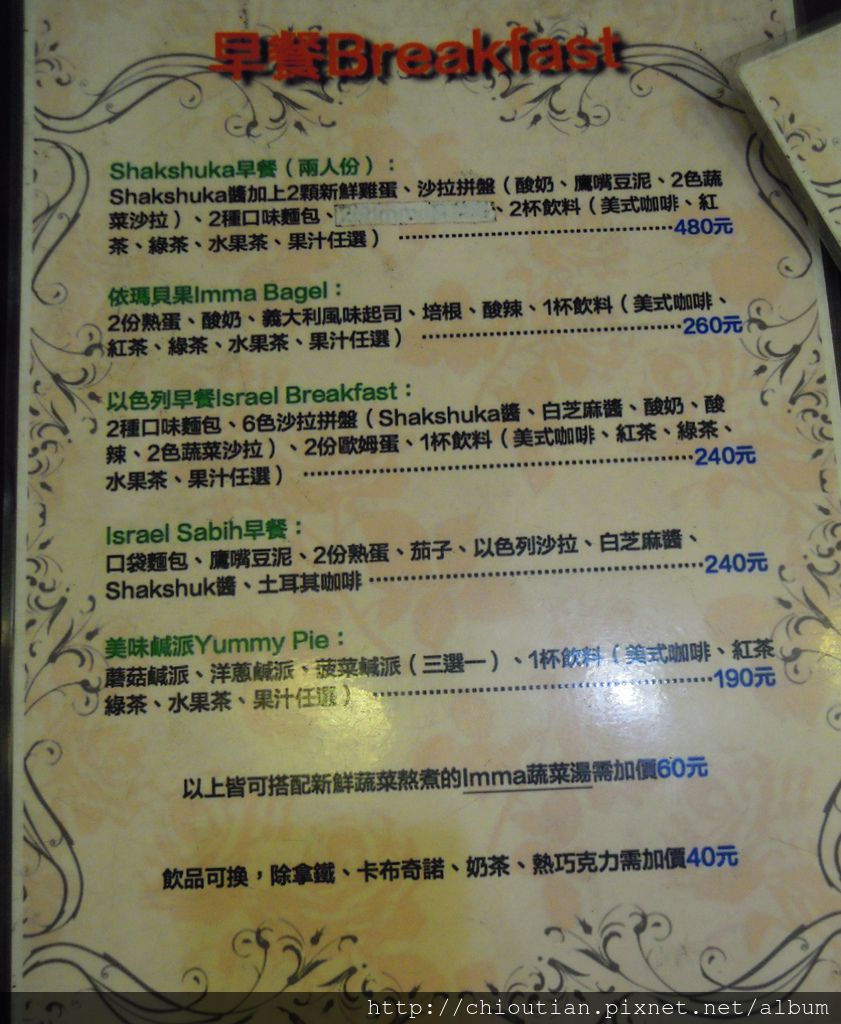 早餐Breakfast
Shakshuka早餐（兩人份）：
Shakshuka醬加上2顆新鮮雞蛋、沙拉拼盤（酸奶、鷹嘴豆泥、2色蔬
菜沙拉）、2種口味麵包、、2杯飲料（美式咖啡、紅
茶、綠茶、水果茶、果汁任選） 480元
依瑪貝果Imma Bagel：
2份熟蛋、酸奶、義大利風味起司、培根、酸辣、1杯飲料（美式咖啡、
紅茶、綠茶、水果茶、果汁任選） 260元
以色列早餐Israel Breakfast：
2種口味麵包、6色沙拉拼盤（Shakshuka醬、白芝麻醬、酸奶、酸
辣、2色蔬菜沙拉）、2份歐姆蛋、1杯飲料（美式咖啡、紅茶、綠茶、
水果茶、果汁任選） 240元
Israel Sabih早餐：
口袋麵包、鷹嘴豆泥、2份熟蛋、茄子、以色列沙拉、白芝麻醬、
Shakshuk醬、土耳其咖啡 240元
美味鹹派Yummy Pie：
蘑菇鹹派、洋蔥鹹派、菠菜鹹派（三選一）、1杯飲料（美式咖啡、紅茶
綠茶、水果茶、果汁任選） 190元
以上皆可搭配新鮮蔬菜熬煮的Imma蔬菜湯需加價60元
飲品可換，除拿鐵、卡布奇諾、奶茶、熱巧克力需加價40元
http://chioutian.pixnet.net/album